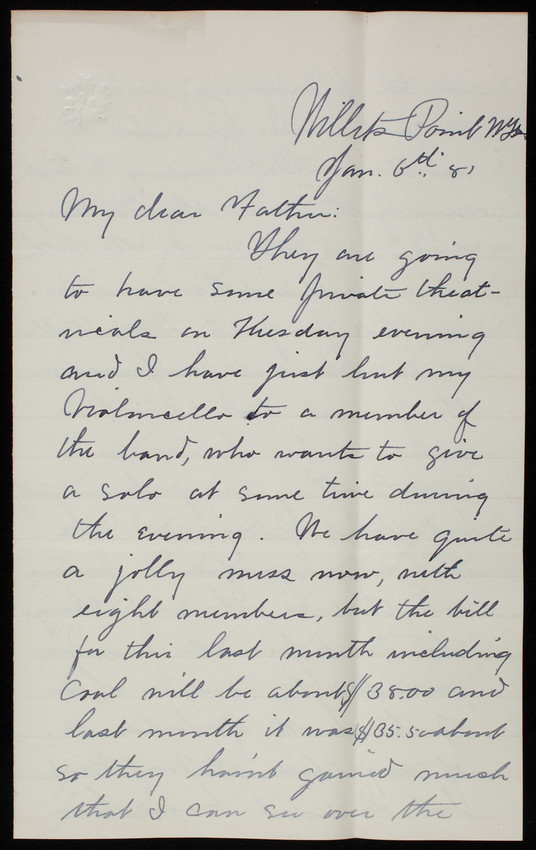 Willets Point NYH
Jan. 6th 81
My dear Father:
They are going
to have some private theat-
ricals on Tuesday evening
and I have just lent my
Violoncello to a member of
the band, who wants to give
a solo at some time during
the evening. We have quite
a jolly mess now, with
eight members, but the bill
for this last month including
Coal will be about $38.00 and
last month it was $35.50 about
so they hav'nt gained much
that I can see over the